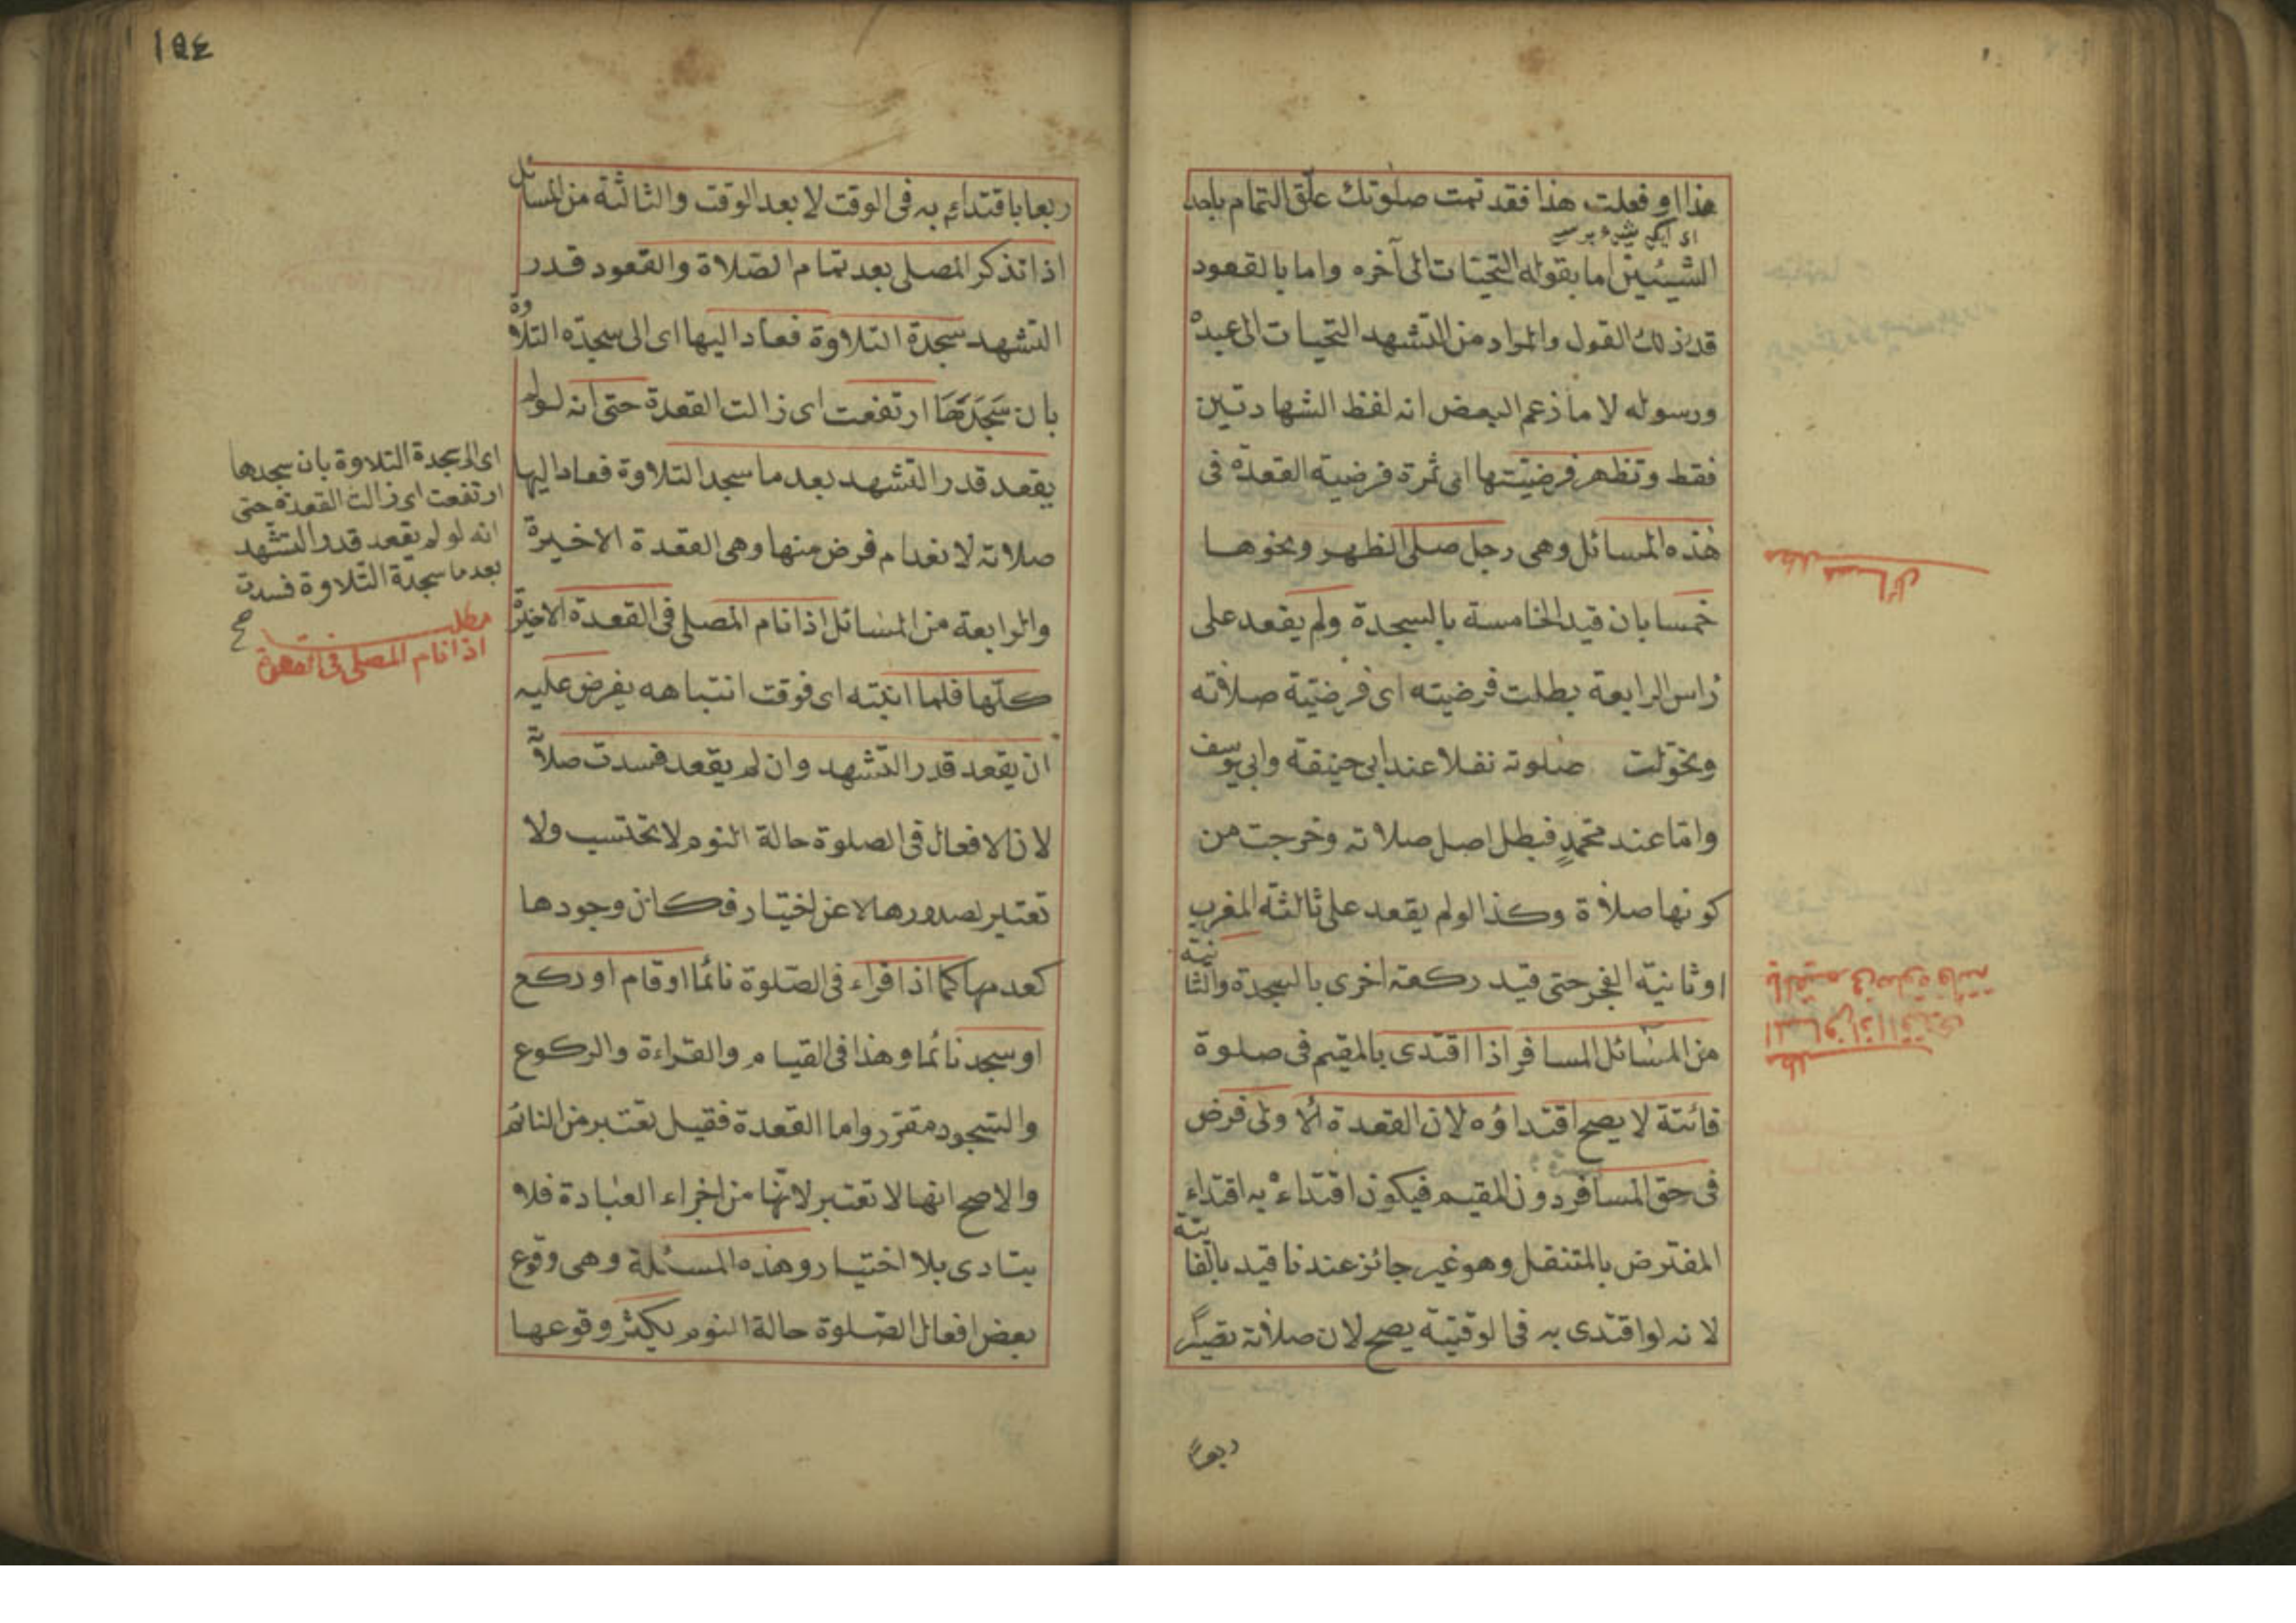 هذا او فعلت هذا فقد تمت صلوتك علّق التمام باحد
الشيئين اما بقوله التحيّات الى آخره واما بالقعود
قدر ذلك القول والمراد من التشهد التحيات الى عبده
ورسوله لا ما زعم البعض انه لفظ الشهادتين
فقط وتظهر فرضيّتها اى ثمرة فرضية القعدة فى
هذه المسائل وهى رجل صلى الظهر ونحوها
خمسا بان قيد الخامسة بالسجدة ولم يقعد على
راس الرابعة بطلت فرضيته اى فرضيّة صلاته
وتحوّلت صلوته نفلا عند ابى حنيفة وابى يوسف
وامّا عند محمدٍ فبطل اصل صلاته وخرجت من
كونها صلاة وكذا لو لم يقعد على ثالثة المغرب
او ثانية الفجر حتى قيد ركعة اخرى بالسجدة والثانية
من المسائل المسافر اذا اقتدى بالمقيم فى صلوة
فائتة لا يصح اقتداؤه لان القعدة الاولى فرض
فى حق المسافر دون المقيم فيكون اقتداءه به اقتداء
المفترض بالمتنفل وهو غير جائز عندنا قيد بالفائتة
لانه لو اقتدى به فى الوقتية يصح لان صلاته تصير
ربعا
مطلب مسائل
مطلب
المسافر اذا اقتدى
بالمقيم فى صلوة فائتة
١٥٤
ربعا باقتدائه به فى الوقت لا بعد الوقت والثالثة من المسائل
اذا تذكر المصلى بعد تمام الصّلاة والقعود قدر
التشهد سجدة التلاوة فعاد اليها اى الى سجدة التلاوة
بان سَجَدَهَا ارتفعت اى زالت القعدة حتى انه لو لم
يقعد قدر التشهد بعد ما سجد التلاوة فعاد اليها
صلاته لانعدام فرض منها وهى القعدة الاخيرة
والرابعة من المسائل اذا نام المصلى فى القعدة الاخيرة
كلّها فلما انتبه اى فوقت انتباهه يفرض عليه
ان يقعد قدر التشهد وان لم يقعد فسدت صلاته
لان الافعال فى الصلوة حالة النوم لا تحتسب ولا
تعتبر لصدورها لا عن اختيار فكان وجودها
كعدمها كما اذا قراء فى الصّلوة نائما او قام او ركع
او سجد نائما وهذا فى القيام والقراءة والركوع
والسّجود مقرّر واما القعدة فقيل تعتبر من النائم
والاصح انها لا تعتبر لانّها من اجزاء العبادة فلا
يتادى بلا اختيار وهذه المسئلة وهى وقوع
بعض افعال الصّلوة حالة النوم يكثر وقوعها
اى الى سجدة التلاوة بان سجدها
ارتفعت اى زالت القعدة حتى
انه لو لم يقعد قدر التشهد
بعد ما سجدة التلاوة فسدت
صح
مطلب
اذا نام المصلى فى القعدة